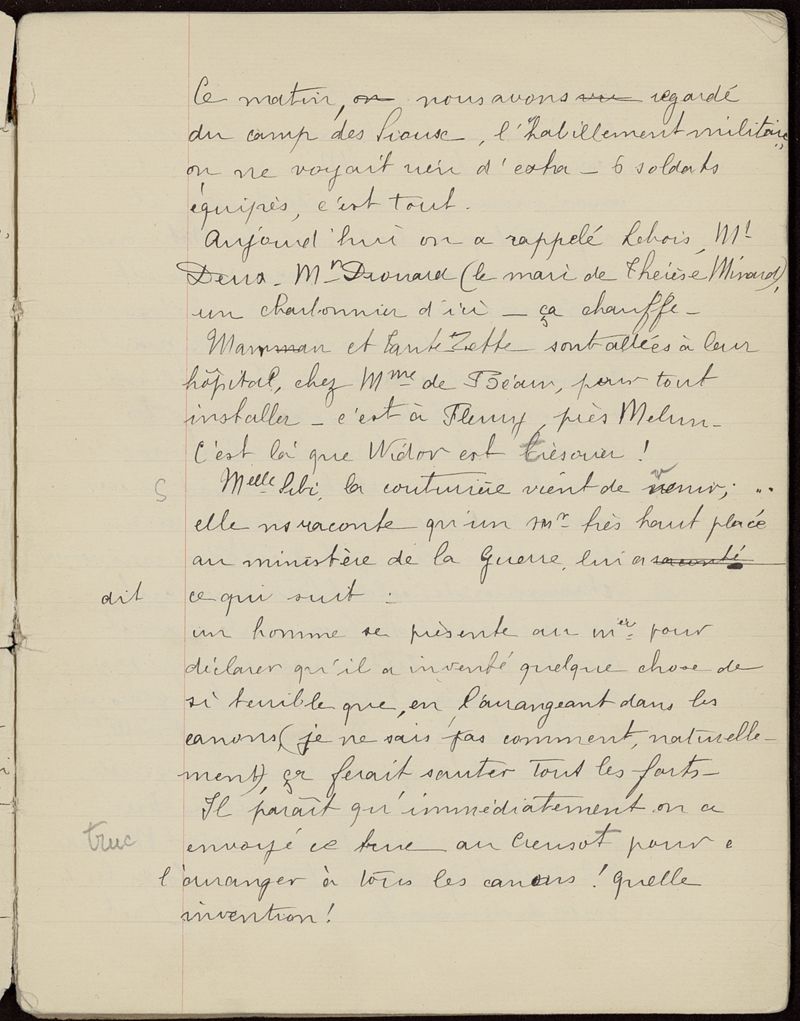 Ce matin, on nous avons vu regardé
du camp des Sioux, l'habillement militaire,
on ne voyait rien d'extra – 6 soldats
équipés, c'est tout.
Aujourd'hui on a rappelé Lebois, Mr
Deux – Mr Drouard (le mari de Thérèse Minard),
un charbonnier d'ici – ça chauffe –
Mamman et tante Zette sont allées à leur
hôpital, chez Mme de Béarn, pour tout
installer – c'est à Fleury, près Melun –
C'est là que Widor est trésorier !
S Melle Sibi, la couturière vient de venir, ..
elle ns raconte qu'un mr très haut placé
au ministère de la Guerre, lui a raconté
dit ce qui suit :
un homme se présente au mer pour
déclarer qu'il a inventé quelque chose de
si terrible que, en l'arrangeant dans les
canons, (je ne sais pas comment, naturelle-
ment) ça ferait sauter tout les forts –
Il paraît qu'immédiatement on a
truc envoyé ce truc au Creusot pour
l'arranger à tous les canons ! quelle
invention !